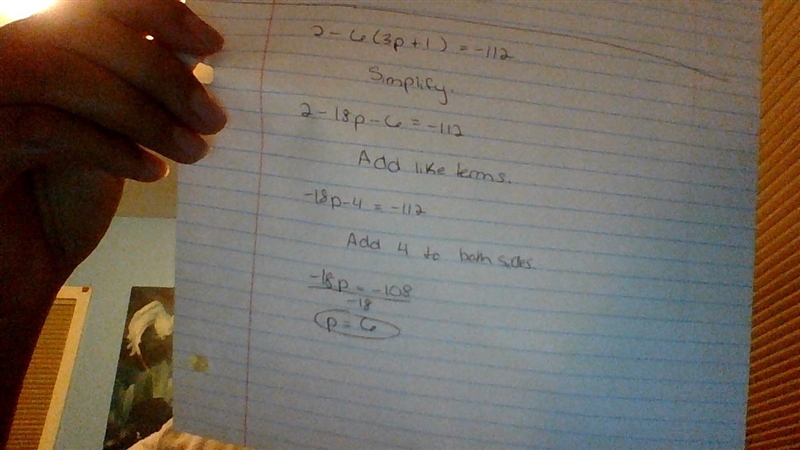 2 - 6(3p + 1) = -112
Simplify.
2 - 18p - 6 = -112
Add like terms.
-18p - 4 = -112
Add 4 to both sides.
-18p = -108
-18
p = 6